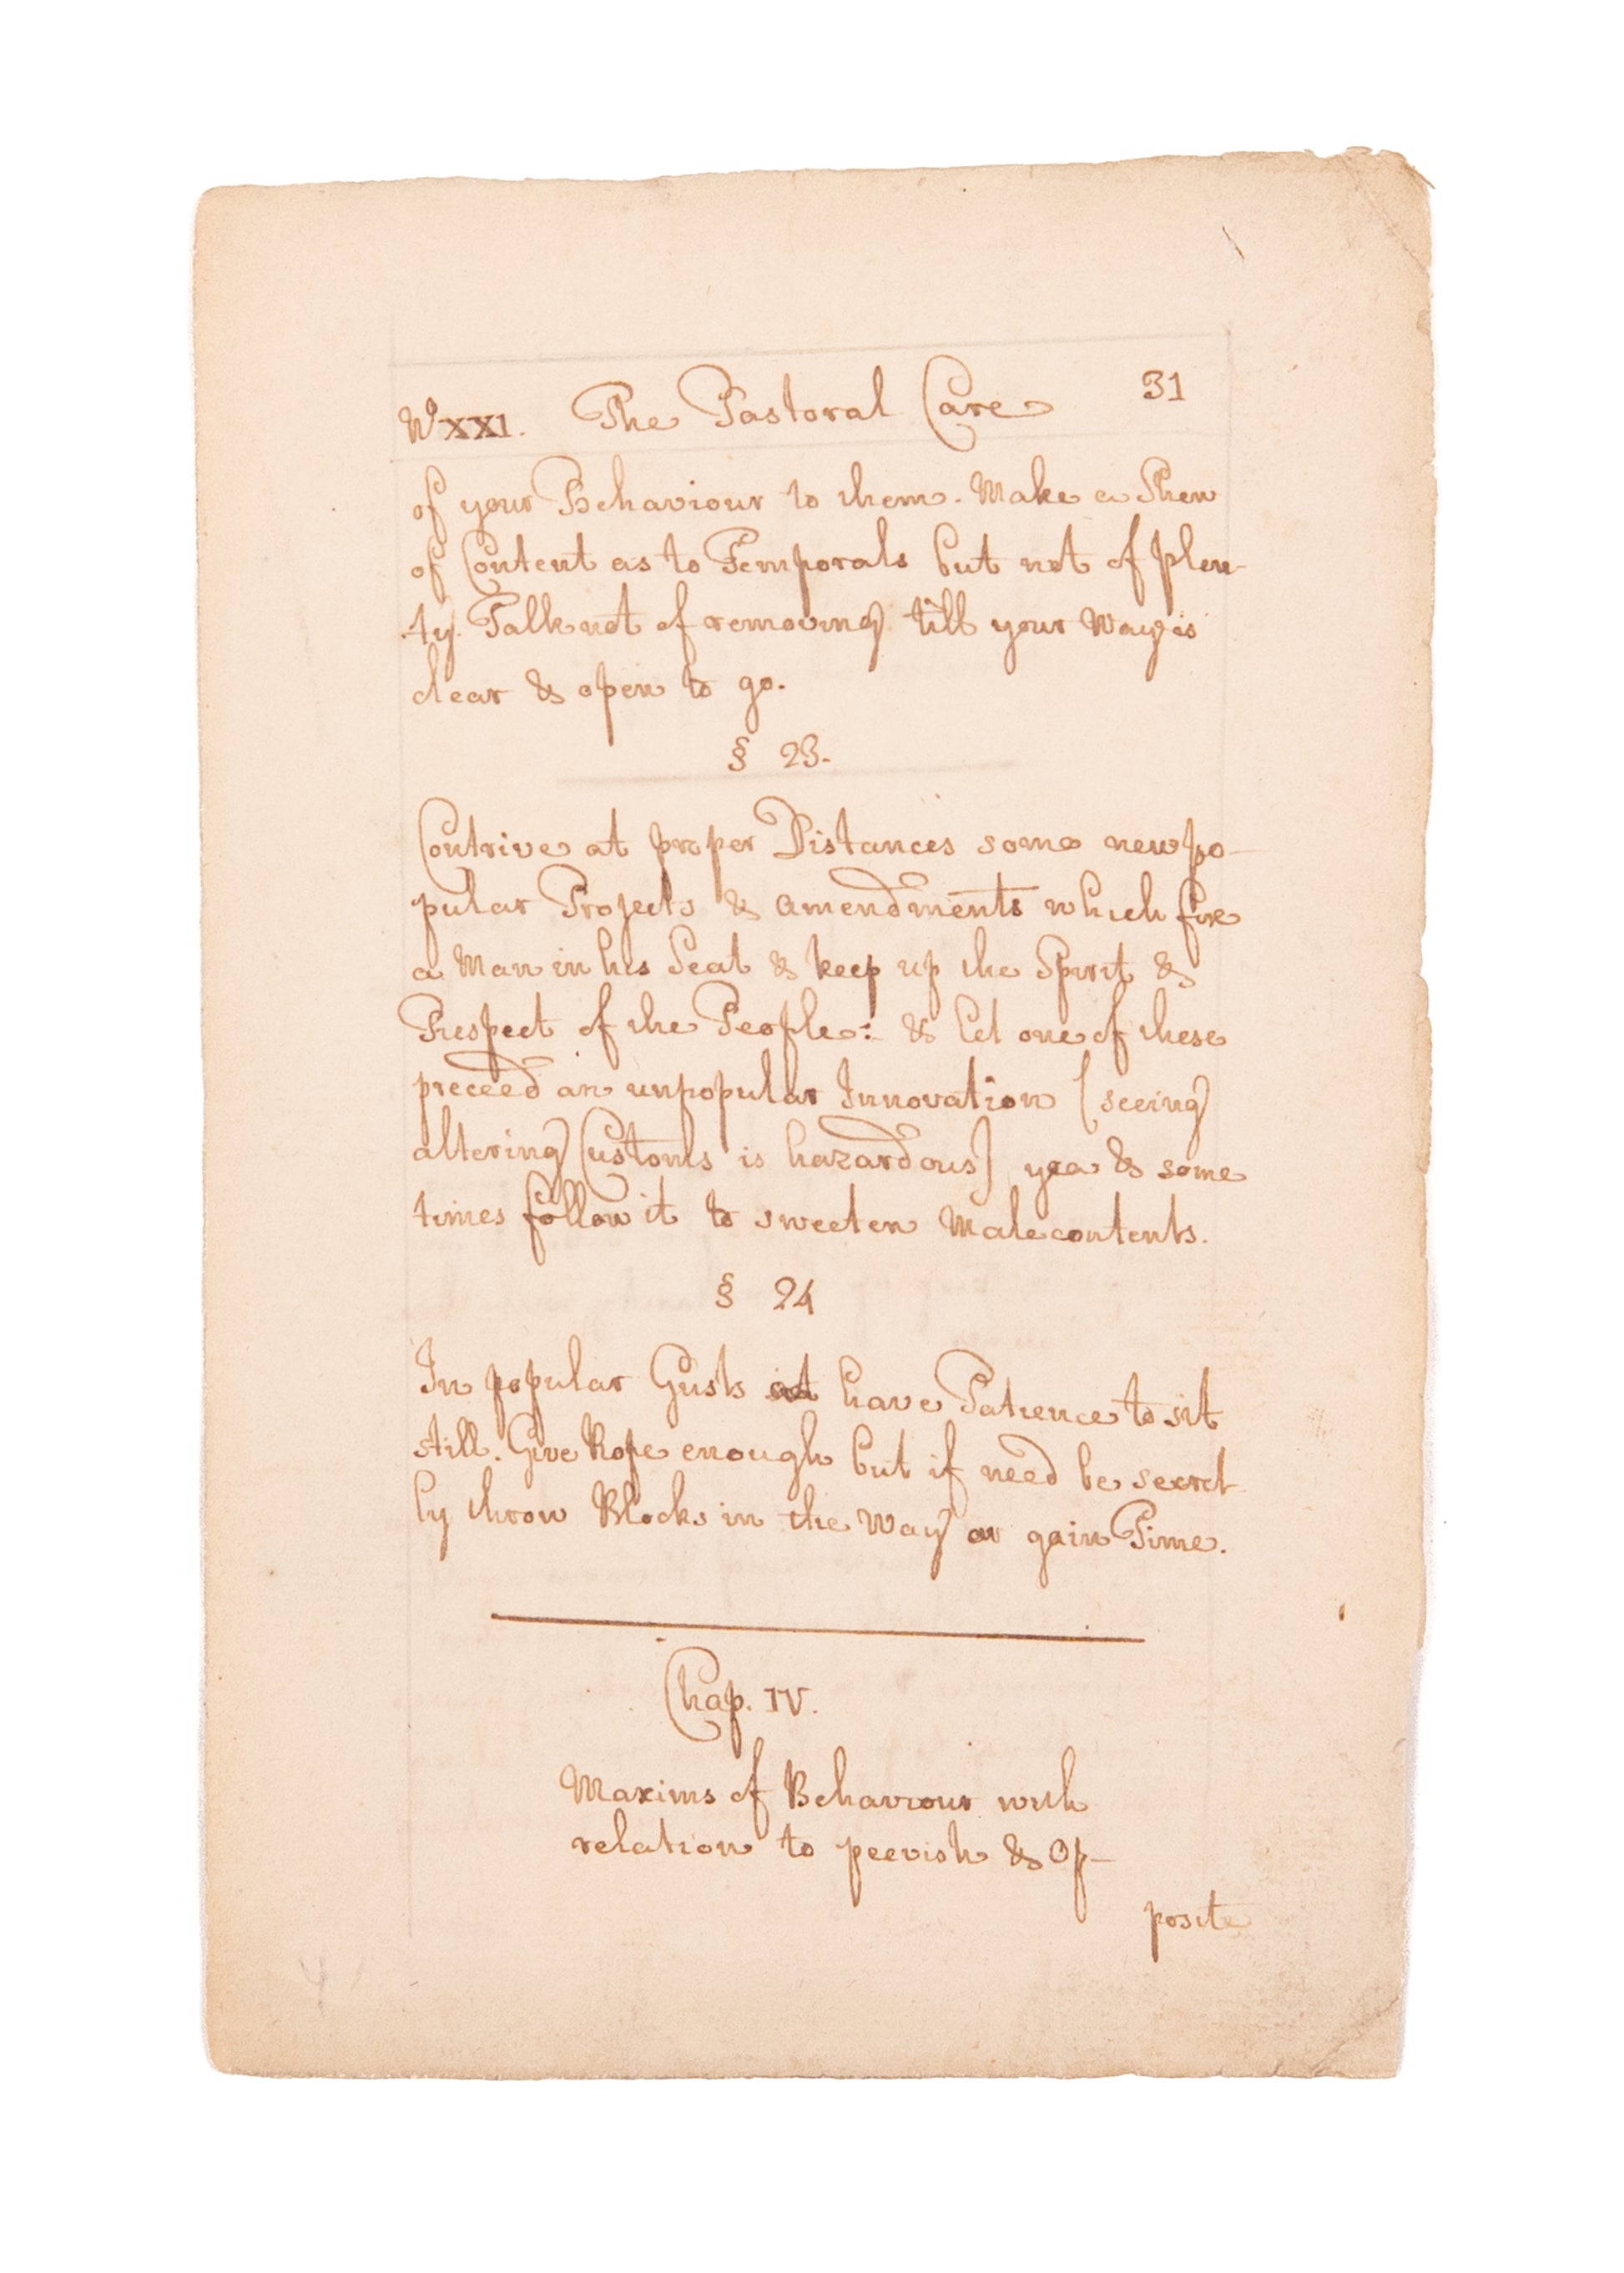 No XXI. The Pastoral Care 31
of your Behaviour to them. Make a Shew
of Content as to Temporals but not of plen-
ty. Talk not of removing till your Way is
clear & open to go.
§ 23.
Contrive at proper Distances some new po-
pular Projects & amendments which fix
a Man in his Seat & keep up the Spirit &
Respect of the People: & let one of these
preceed an unpopular Innovation (seeing
altering Customs is hazardous) yea & some
times follow it to sweeten Malecontents.
§ 24
In popular Gusts have Patience to sit
still. Give Rope enough but if need be secret
ly throw Blocks in the Way or gain Time.
Chap. IV.
Maxims of Behaviour with
relation to peevish & Op-
posite